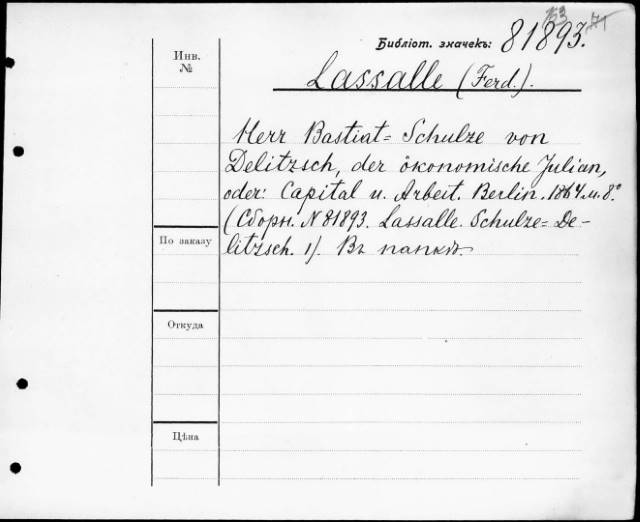 Библіот. значекъ: 81893.
Инв. №
Lassalle (Ferd.).
Herr Bastiat=Schulze von
Delitzsch, der ökonomische Julian,
oder: Capital u. Arbeit. Berlin. 1864. 8°
(Сборн. N 81893. Lassalle. Schulze=De-
litzsch. 1). Въ папкѣ.
По заказу
Откуда
Цѣна